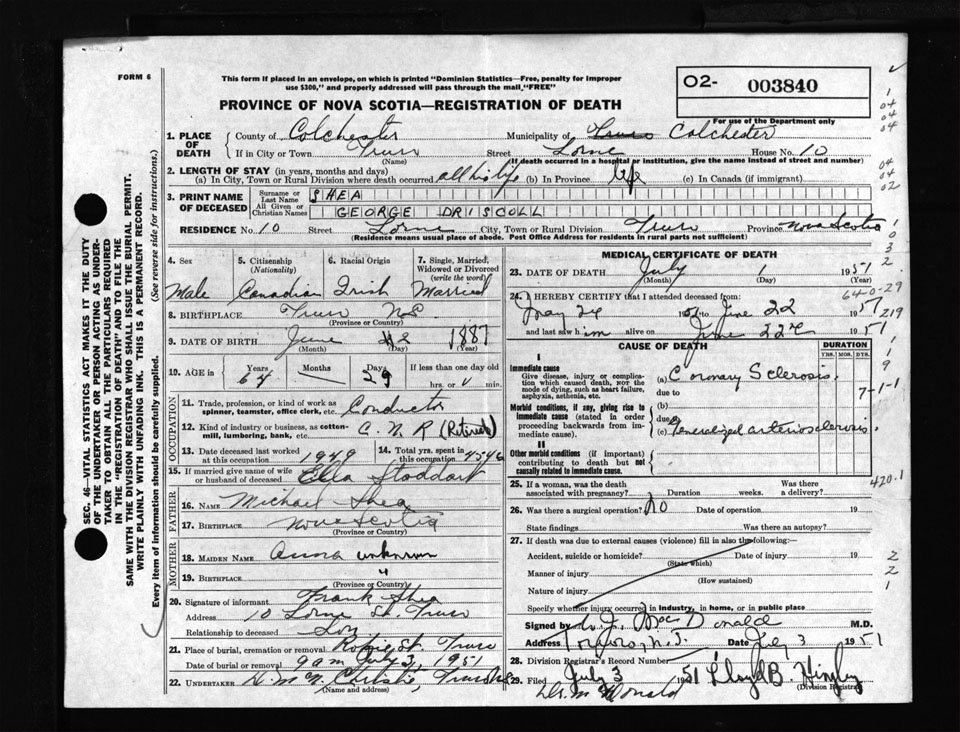 FORM 6
This form if placed in an envelope, on which is printed "Dominion Statistics—Free, penalty for improper
use $300," and properly addressed will pass through the mail "FREE"
PROVINCE OF NOVA SCOTIA—REGISTRATION OF DEATH
O2- 003840
For use of the Department only
1. PLACE OF DEATH
County of Colchester Municipality of Truro Colchester
If in City or Town Truro Street Lorne House No. 10
(Name) (If death occurred in a hospital or institution, give the name instead of street and number)
2. LENGTH OF STAY (in years, months and days)
(a) In City, Town or Rural Division where death occurred all his life (b) In Province life (c) In Canada (if immigrant)
3. PRINT NAME OF DECEASED
Surname or Last Name SHEA
All Given or Christian Names GEORGE DRISCOLL
RESIDENCE No. 10 Street Lorne City, Town or Rural Division Truro Province Nova Scotia
(Residence means usual place of abode. Post Office Address for residents in rural parts not sufficient)
4. Sex 5. Citizenship (Nationality) 6. Racial Origin 7. Single, Married, Widowed or Divorced (write the word)
Male Canadian Irish Married
8. BIRTHPLACE Truro N.S.
(Province or Country)
9. DATE OF BIRTH June 2 1887
(Month) (Day) (Year)
10. AGE in Years Months Days If less than one day old
64 — 29 hrs. or min.
OCCUPATION
11. Trade, profession, or kind of work as
spinner, teamster, office clerk, etc. Conductor
12. Kind of industry or business, as cotton-
mill, lumbering, bank, etc. C.N.R (Retired)
13. Date deceased last worked at this occupation 1949 14. Total yrs. spent in this occupation 45
15. If married give name of wife or husband of deceased Ella Stoddart
FATHER
16. NAME Michael Shea
17. BIRTHPLACE Nova Scotia
(Province or Country)
MOTHER
18. MAIDEN NAME Anna unknown
19. BIRTHPLACE "
(Province or Country)
20. Signature of informant Frank Shea
Address 10 Lorne St. Truro
Relationship to deceased Son
21. Place of burial, cremation or removal Robie St. Truro
Date of burial or removal 9 am July 3, 1951
22. UNDERTAKER Christie, Truro N.S.
(Name and address)
MEDICAL CERTIFICATE OF DEATH
23. DATE OF DEATH July 1 1951
(Month) (Day) (Year)
24. I HEREBY CERTIFY that I attended deceased from:
May 24 1951 to June 22 1951
and last saw him alive on June 22 1951
CAUSE OF DEATH
DURATION
YRS. MOS. DYS.
I
Immediate cause
Give disease, injury or complica-
tion which caused death, not the
mode of dying, such as heart failure,
asphyxia, asthenia, etc.
(a) Coronary Sclerosis
due to
Morbid conditions, if any, giving rise to
immediate cause (stated in order
proceeding backwards from im-
mediate cause).
(b)
due to
(c) Generalized arteriosclerosis
II
Other morbid conditions (if important)
contributing to death but not
causally related to immediate cause.
25. If a woman, was the death Was there
associated with pregnancy? Duration weeks. a delivery?
26. Was there a surgical operation? No Date of operation 19
State findings Was there an autopsy?
27. If death was due to external causes (violence) fill in also the following:—
Accident, suicide or homicide? Date of injury 19
(State which)
Manner of injury
(How sustained)
Nature of injury
Specify whether injury occurred in industry, in home, or in public place
Signed by MacDonald M.D.
Address Truro, N.S. Date July 3 1951
28. Division Registrar's Record Number
29. Filed July 3 1951 Lloyd B. Hingley
(Division Registrar)
Dr. McDonald
64-0-29
219
7-1-1
420.1
SEC. 46—VITAL STATISTICS ACT MAKES IT THE DUTY
OF THE UNDERTAKER OR PERSON ACTING AS UNDER-
TAKER TO OBTAIN ALL THE PARTICULARS REQUIRED
IN THE "REGISTRATION OF DEATH" AND TO FILE THE
SAME WITH THE DIVISION REGISTRAR WHO SHALL ISSUE THE BURIAL PERMIT.
WRITE PLAINLY WITH UNFADING INK. THIS IS A PERMANENT RECORD.
Every item of information should be carefully supplied. (See reverse side for instructions.)